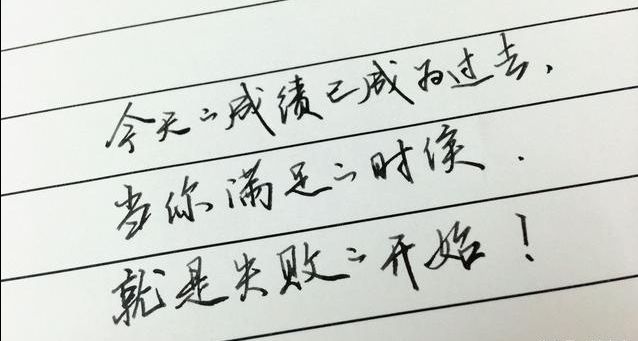 今天的成绩已成为过去，
当你满足的时候．
就是失败的开始！